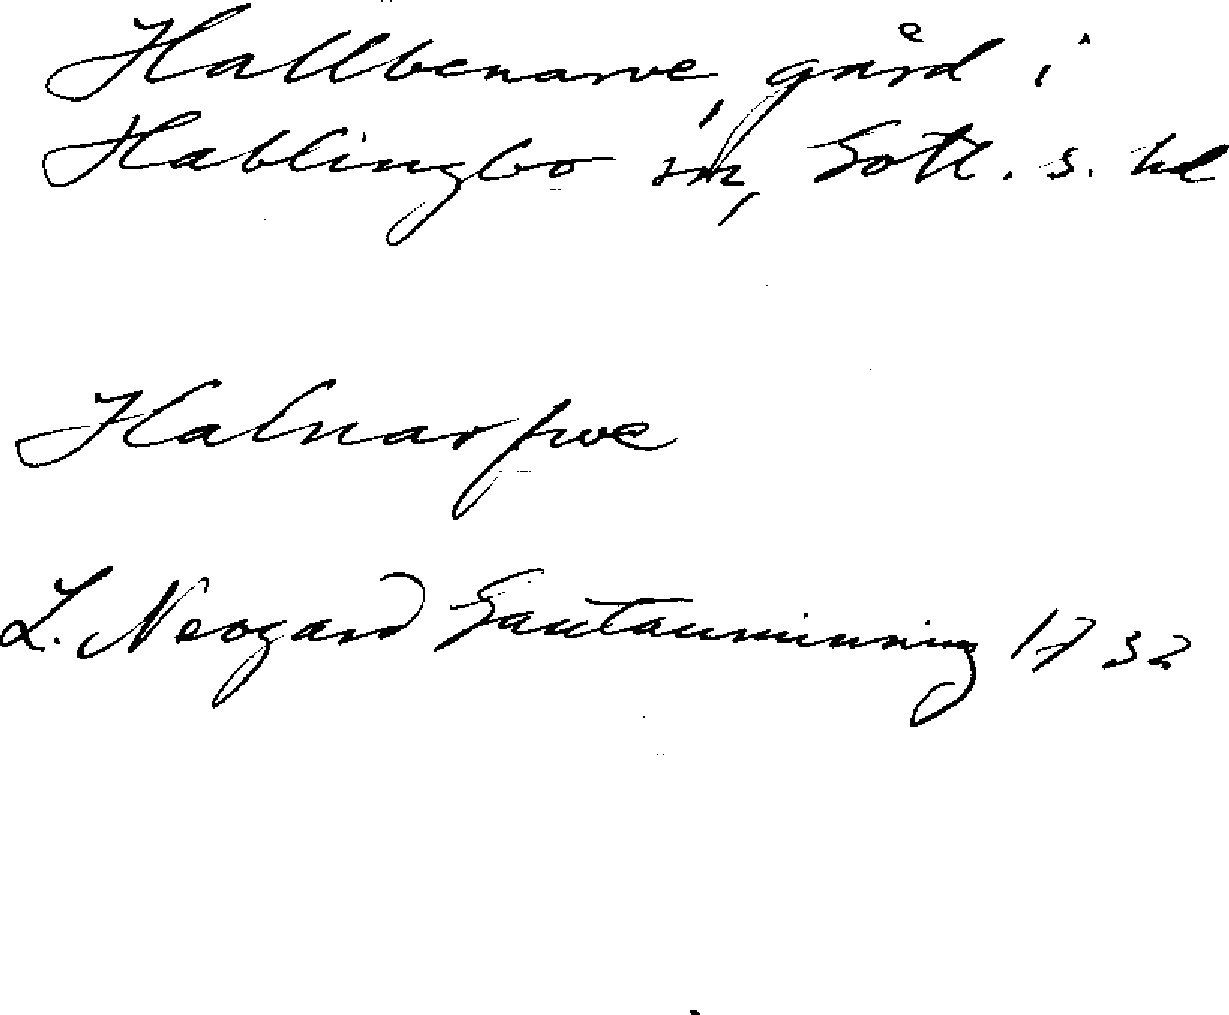 Hallbenarve, gård i
Hablingbo sn, Gotl. s. hd
Halnarfwe
L. Neogard Gautauminning 1732